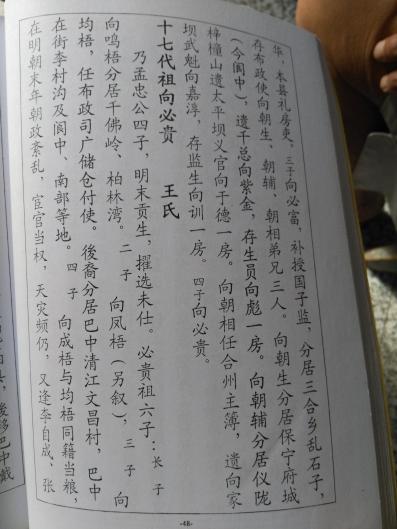 华，本县礼房吏。三子向必富，补授国子监，分居三合乡乱石子，
存布政使向朝生、朝辅、朝相弟兄三人。向朝生分居保宁府城
（今阆中），遗千总向紫金，存生员向彪一房。向朝辅分居仪陇
梓橦山遗太平坝义官向于德一房。向朝相任合州主簿，遗向家
坝武魁向嘉淳，存监生向训一房。四子向必贵。
十七代祖向必贵 王氏
乃孟忠公四子，明末贡生，擢选未仕。必贵祖六子：长子
向鸣梧分居千佛岭、柏林湾。二子向凤梧（另叙），三子向
均梧，任布政司广储仓付使。後裔分居巴中清江文昌村，巴中
在街李村沟及阆中、南部等地。四子向成梧与均梧同籍当粮，
在明朝末年朝政紊乱，宦官当权，天灾频仍，又逢李自成、张
-48-